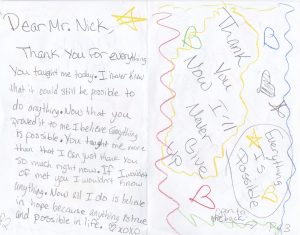 Dear Mr. Nick
Thank You For everything
You taught me today. I never knew
that it could still be possible to
do anything. Now that you
proved it to me I believe anything
is possible. You taught me more
than that I can just thank you
so much right now. If I wouldn't
of met you I wouldn't know
anything. Now all I do is believe
in hope because anything is true
and possible in life. xoxo
Thank You
Now I'll
Never
Give
up
Everything
Is
Possible